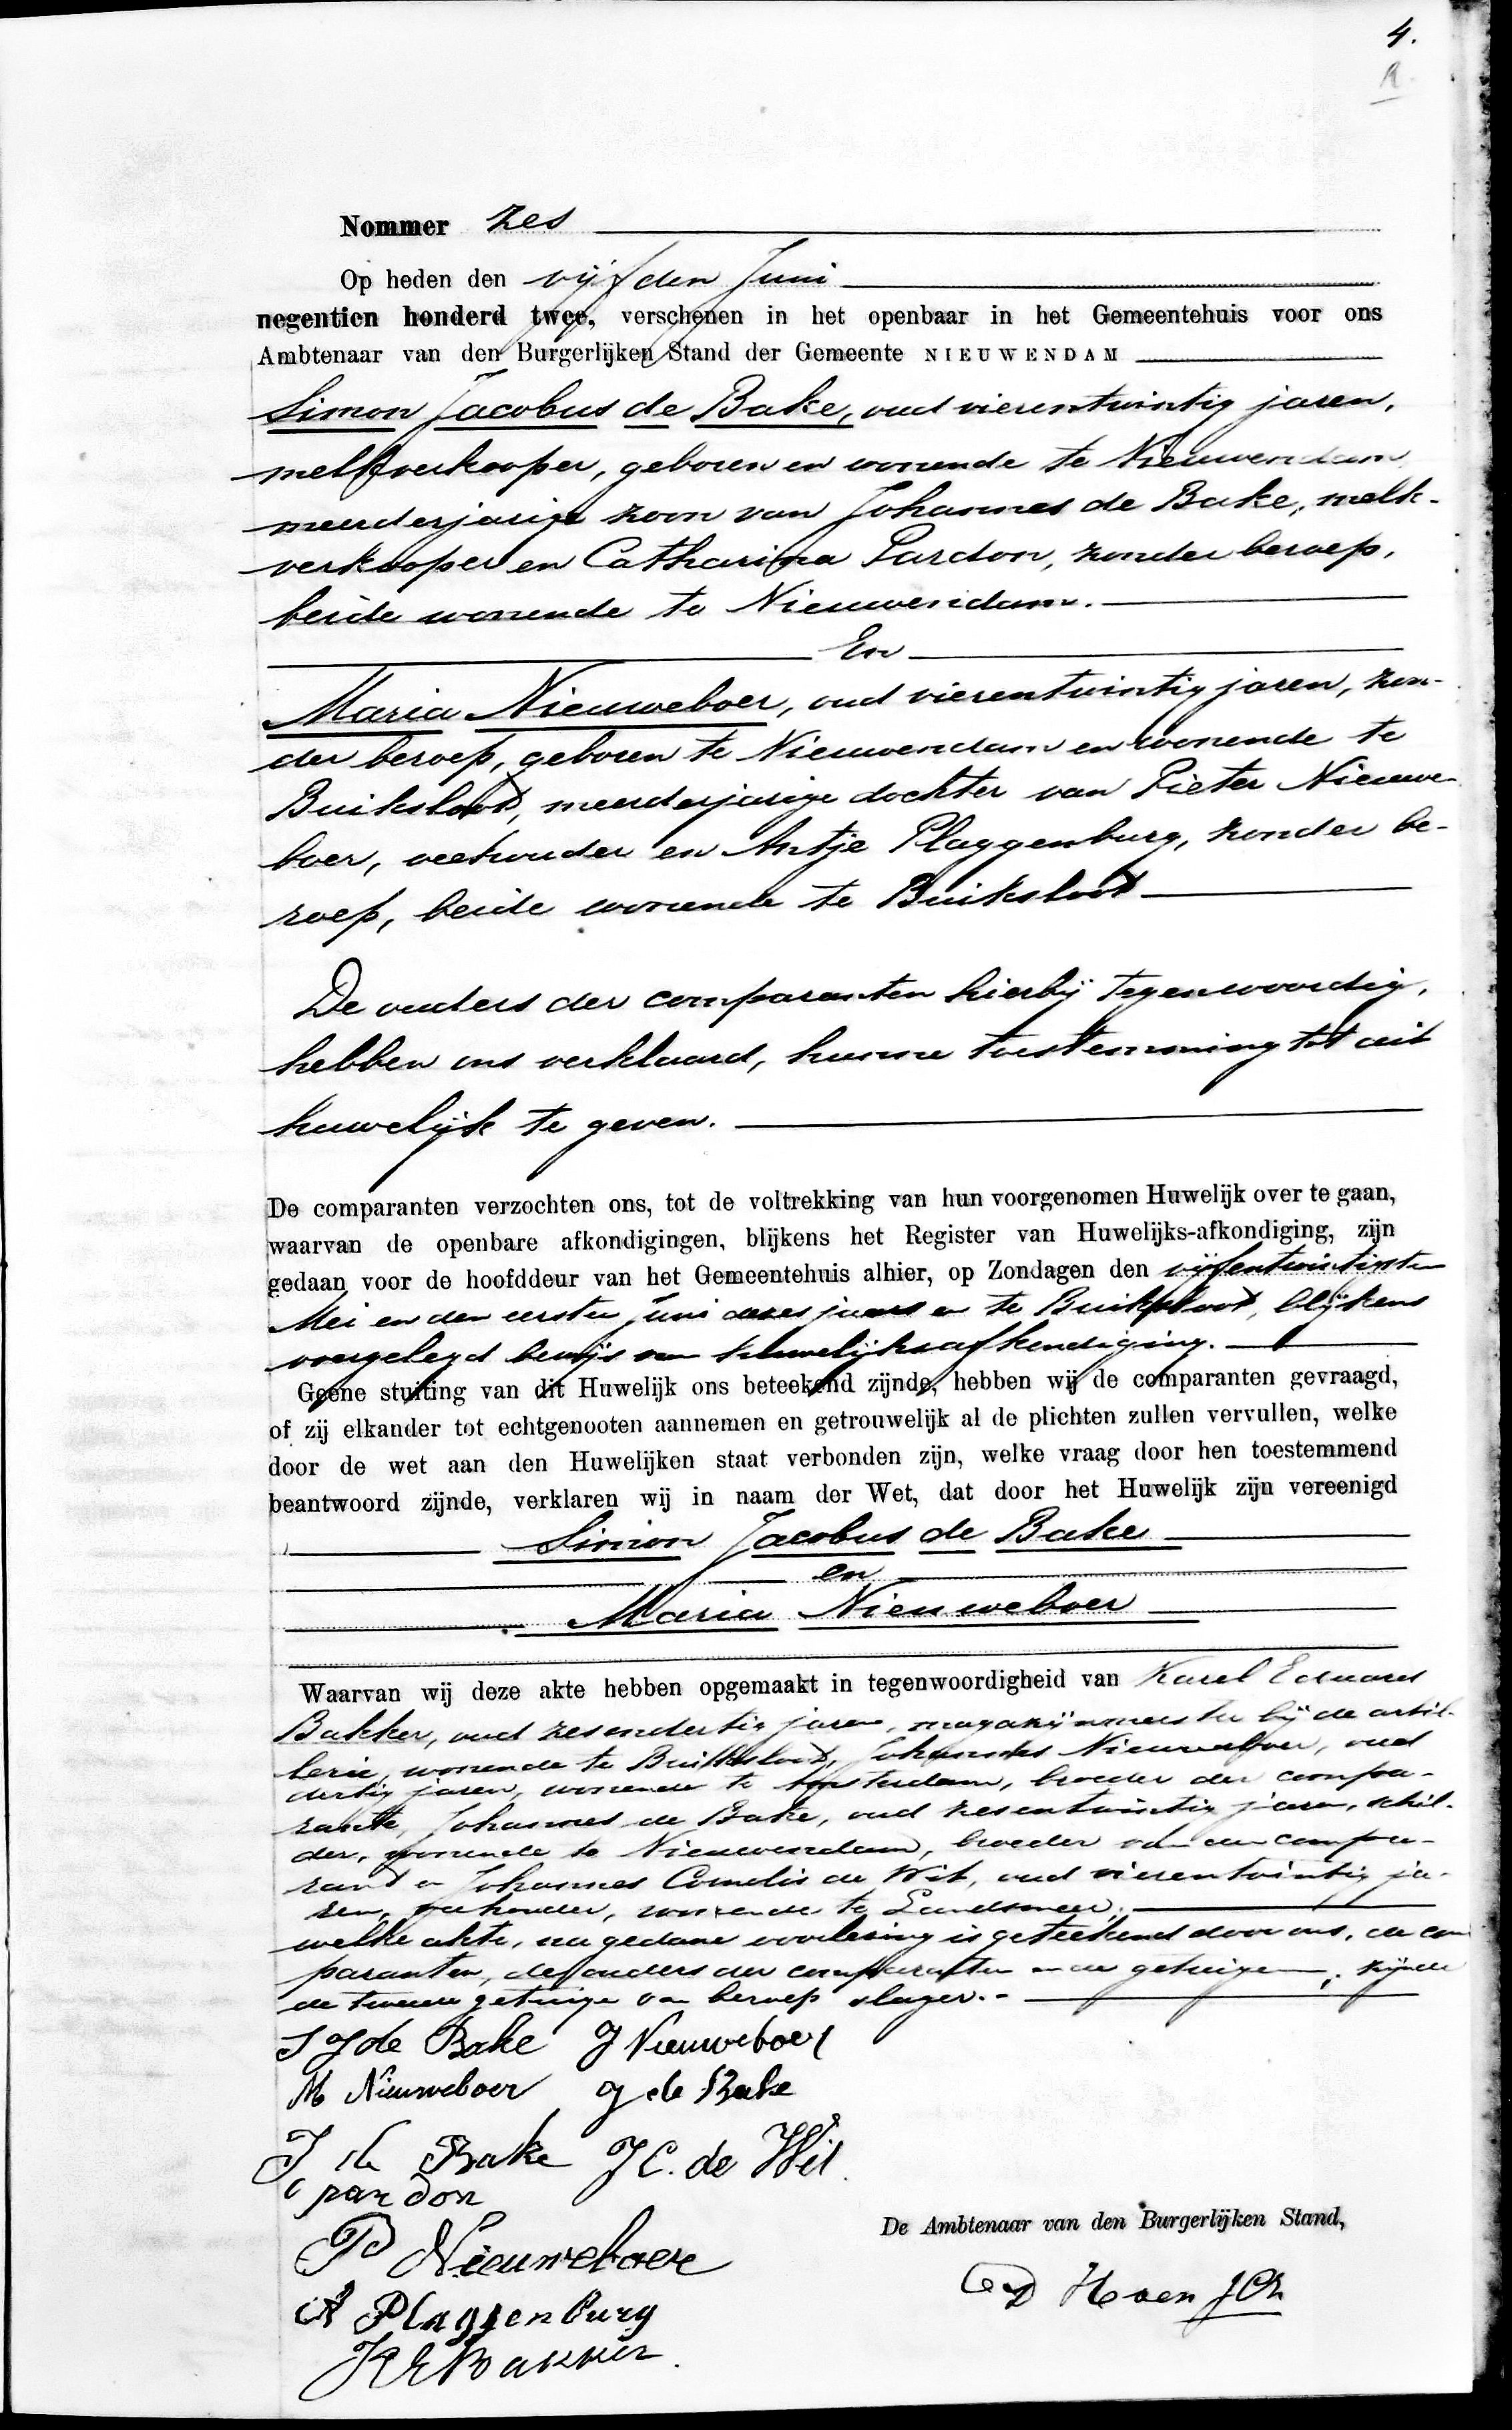 4.
Nommer zes
Op heden den vijfden Juni
negentien honderd twee, verschenen in het openbaar in het Gemeentehuis voor ons
Ambtenaar van den Burgerlijken Stand der Gemeente NIEUWENDAM
Simon Jacobus de Bake, oud vierentwintig jaren,
melkverkooper, geboren en wonende te Nieuwendam
meerderjarige zoon van Johannes de Bake, melk-
verkooper en Catharina Pardon, zonder beroep,
beide wonende te Nieuwendam.
En
Maria Nieuweboer, oud vierentwintig jaren, zon-
der beroep, geboren te Nieuwendam en wonende te
Buiksloot, meerderjarige dochter van Pieter Nieuwe-
boer, veehouder en Antje Plaggenburg, zonder be-
roep, beide wonende te Buiksloot
De ouders der comparanten hierbij tegenwoordig,
hebben ons verklaard, hunne toestemming tot dit
huwelijk te geven.
De comparanten verzochten ons, tot de voltrekking van hun voorgenomen Huwelijk over te gaan,
waarvan de openbare afkondigingen, blijkens het Register van Huwelijks-afkondiging, zijn
gedaan voor de hoofddeur van het Gemeentehuis alhier, op Zondagen den vijfentwintigsten
Mei en den eersten Juni dezes jaars en te Buiksloot, blijkens
overgelegd bewijs van huwelijksafkondiging.
Geene stuiting van dit Huwelijk ons beteekend zijnde, hebben wij de comparanten gevraagd,
of zij elkander tot echtgenooten aannemen en getrouwelijk al de plichten zullen vervullen, welke
door de wet aan den Huwelijken staat verbonden zijn, welke vraag door hen toestemmend
beantwoord zijnde, verklaren wij in naam der Wet, dat door het Huwelijk zijn vereenigd
Simon Jacobus de Bake
en
Maria Nieuweboer
Waarvan wij deze akte hebben opgemaakt in tegenwoordigheid van Karel Eduard
Bakker, oud zesendertig jaren, magazijnmeester bij de artil-
lerie, wonende te Buiksloot, Johannes Nieuweboer, oud
dertig jaren, wonende te Amsterdam, broeder der compa-
rante, Johannes de Bake, oud zesentwintig jaren, schil-
der, wonende te Nieuwendam, broeder van den compa-
rant en Johannes Cornelis de Wit, oud vierentwintig ja-
ren, veehouder, wonende te Landsmeer,
welke akte, na gedane voorlezing is geteekend door ons, de com
paranten, de ouders der comparanten en de getuigen, zijnde
de tweede getuige van beroep slager.
S J de Bake J Nieuweboer
M Nieuweboer J de Bake
J de Bake J C. de Wit
C pardon
P Nieuweboer
De Ambtenaar van den Burgerlijken Stand,
A Plaggenburg
K E Bakker